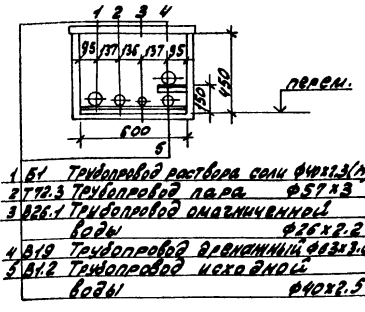 1 2 3 4
95 137 136 137 95
перем.
150
450
600
5
1 Б1 Трубопровод раствора соли
2 Т72.3 Трубопровод пара ф57х3
3 В26.1 Трубопровод омагниченной
воды ф26х2.2
4 В19 Трубопровод дренажный
5 В1.2 Трубопровод исходной
воды ф40х2.5